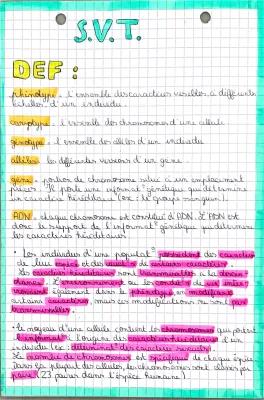 S.V.T.
DEF :
phénotype : l'ensemble des caractères visibles à différents
échelles d'un individu.
caryotype : l'ensemble des chromosomes d'une cellule
génotype : l'ensemble des allèles d'un individu
allèles : les différentes versions d'un gène.
gène : portion de chromosome situé à un emplacement
précis. Il porte une informat° génétique qui détermine
un caractère héréditaire (ex : le groupe sanguin).
ADN : chaque chromosome est constitué d'ADN. L'ADN est
donc le support de l'informat° génétique qui détermine
les caractères héréditaires.
• Les individus d'une populat° possèdent des caractères
de leur espèce et des de certains caractères.
Les caractères héréditaires sont transmissibles à la descen
dance. L'environnement ou les condit° de vie
également le phénotype en modifiant
certains caractères, mais ces modifications ne sont pas
transmissibles.
• Le noyau d'une cellule contient les chromosomes qui portent
l'informat° à l'origine des caractères héréditaires d'un
individu (ex : déterminat° des caractères sexuels).
Le nombre de chromosomes est spécifique de chaque espèce.
Dans la plupart des cellules, les chromosomes sont classés par
paire (23 paires dans l'espèce humaine)